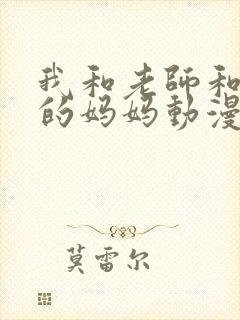 我和老師和
的妈妈動漫
莫雷尔